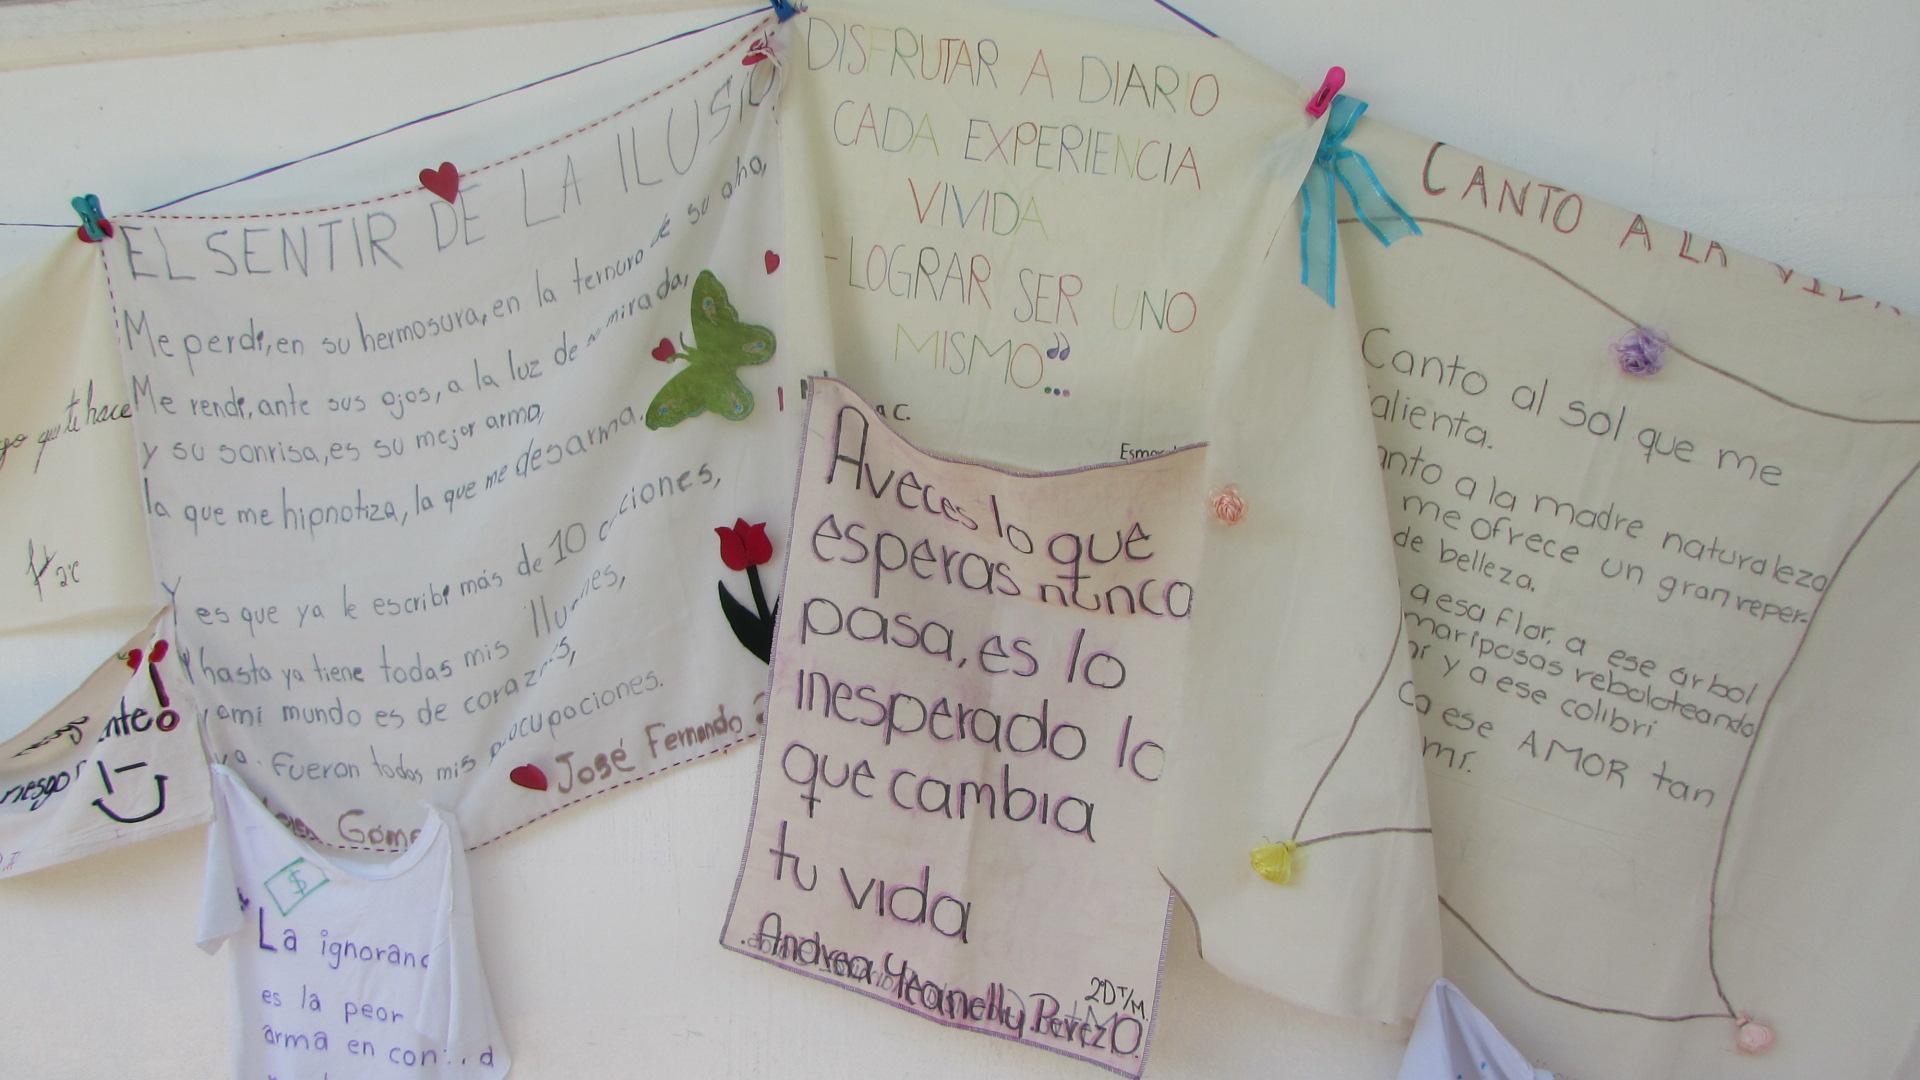 que te hace
2°C
nte!
riesgo
EL SENTIR DE LA ILUSIO
Me perdi, en su hermosura, en la ternura de su
Me rendi, ante sus ojos, a la luz de su mirada,
y su sonrisa, es su mejor arma,
la que me hipnotiza, la que me desarma.
Y es que ya le escribi más de 10 canciones,
Y hasta ya tiene todas mis
mi mundo es de
fueron todas mis preocupaciones.
José Fernando
Góme
$
La ignoranc
es la peor
arma en
DISFRUTAR A DIARIO
CADA EXPERIENCIA
VIVIDA
- LOGRAR SER UNO
MISMO...
a C.
Esme
Aveces lo que
esperas nunca
pasa, es lo
inesperado lo
que cambia
tu vida
Andrea Yeanelly Perez O.
2°D T/M.
CANTO A LA VIDA
Canto al sol que me
alienta.
anto a la madre naturaleza
me ofrece un gran reper-
de belleza.
a esa flor, a ese árbol
mariposas reboloteando
y a ese colibri
a ese AMOR tan
mí.